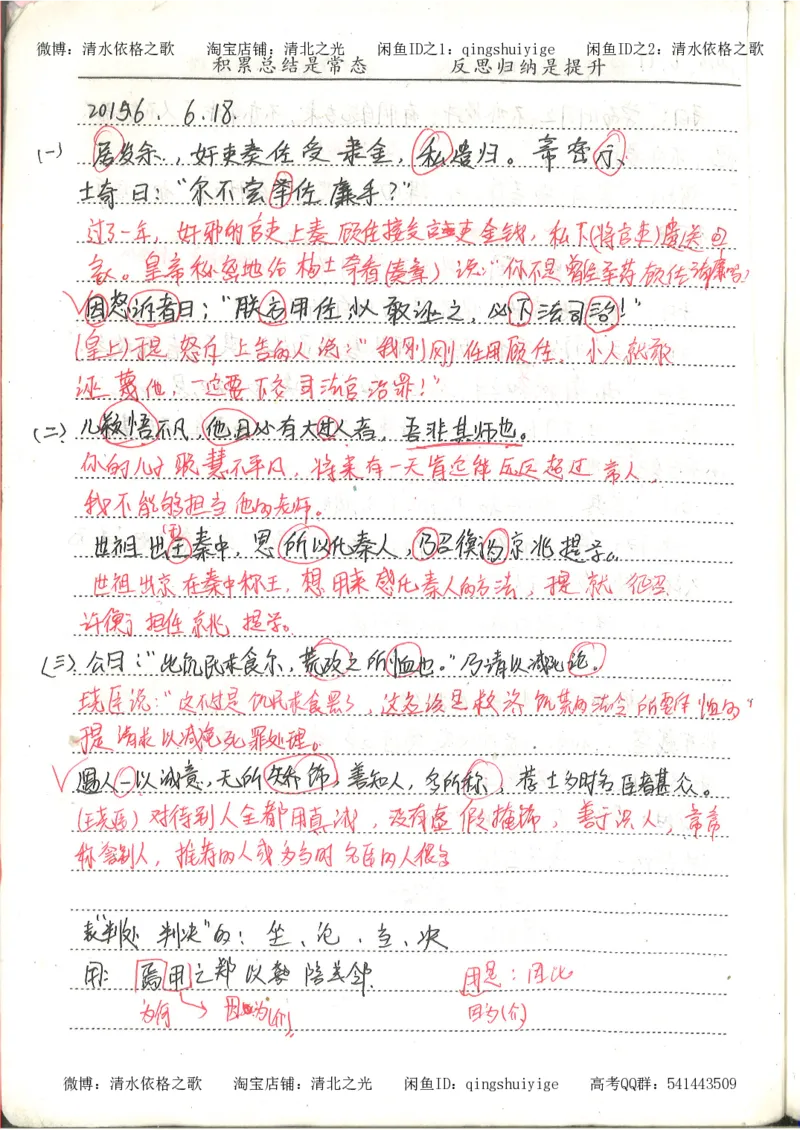 微博：清水依格之歌 淘宝店铺：清北之光 闲鱼ID之1：qingshuiyige 闲鱼ID之2：清水依格之歌
积累总结是常态 反思归纳是提升
20156. 6.18.
(一) 居岁余，奸吏奏佐受隶金，私遣归。帝密示
士奇曰："尔不尝举佐廉乎？"
过了一年，奸邪的官吏上奏顾佐接受隶金钱，私下(将官吏)遣送回
家。皇帝秘密地给杨士奇看(奏章)说："你不是曾经举荐顾佐清廉吗？
因怒诉者曰："朕方用佐，小人敢诬之，必下法司治！"
(皇上)于是怒斥上告的人说："我刚刚任用顾佐，小人就敢
诬蔑他，一定要下交司法官治罪！"
(二) 儿颖悟不凡，他日必有大过人者，吾非其师也。
你的儿子聪慧不平凡，将来有一天肯定能远远超过常人，
我不能够担当他的老师。
世祖出王秦中，思所以化秦人，乃召衡为京兆提学。
世祖出京在秦中称王，想用来感化秦人的方法，于是就征召
许衡担任京兆提学。
(三) 公曰："此饥民求食尔，荒政之所恤也。"乃请以减死论。
说："这不过是饥民求食罢了，这应该是救济饥荒的法令所要体恤的"
于是请求以减免死罪处理。
遇人一以诚意，无所矫饰，善知人，多所称，荐士多时名臣者甚众。
对待别人全都用真诚，没有虚假掩饰，善于识人，常常
称誉别人，推荐的人成为当时名臣的人很多
表"判处 判决"的：坐、论、当、决
用：焉用之郑以 陪其邻. 用是：因此
为何 因为(介) 因为(介)
微博：清水依格之歌 淘宝店铺：清北之光 闲鱼ID：qingshuiyige 高考QQ群：541443509